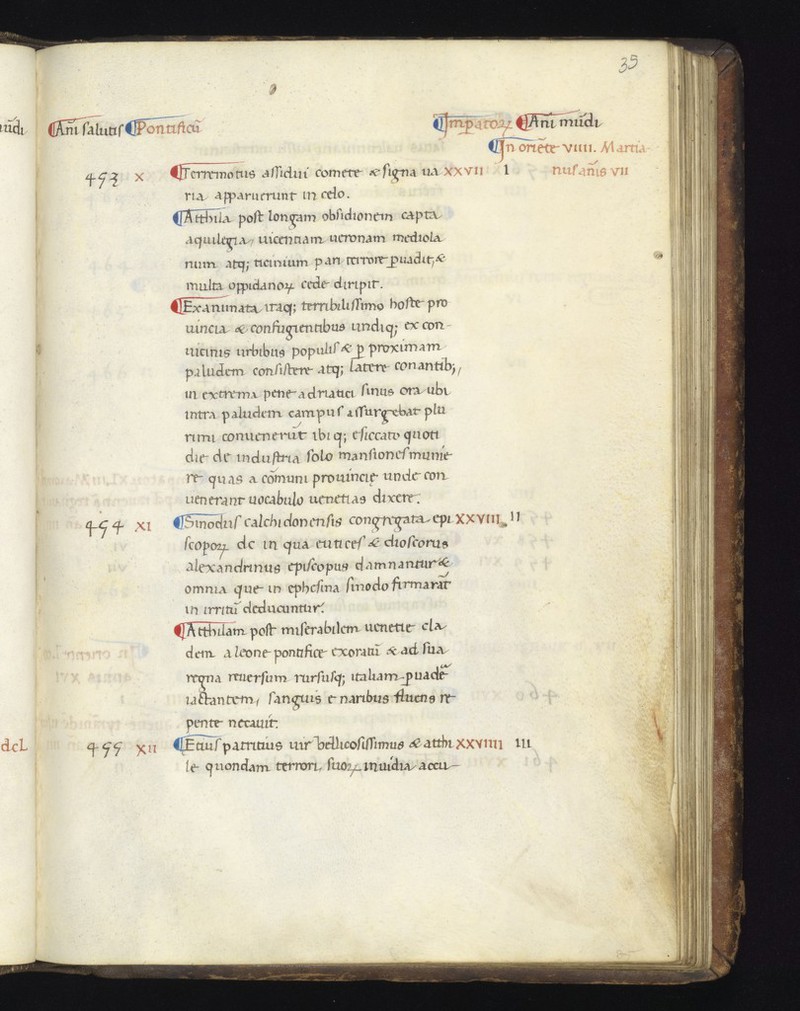 35
Ani salutis Pontificū Impatoꝝ Ani mūdi
In oriēte VIIII. Martia
453 X Terremotus assidui comete & signa ua XXVII I nus anis VII
ria apparuerunt in celo.
Atthila post longam obsidionem capta
aquilegia, uicentiam ueronam mediola
num atq; ticinium pari terrore puadit, &
multa oppidanoꝝ cede diripit.
Exanimata itaq; terribilissimo hoste pro
uincia & confugientibus undiq; ex con-
uicinis urbibus populis & ꝑ proximam
paludem consistere atq; latere conantib;,
in extrema pene adriatici sinus ora ubi
intra paludem campus assurgebat plu
rimi conuenerūt ibiq; esiccato quoti
die de industria solo mansiones munie
re quas a cōmuni prouincie unde con
uenerant uocabulo uenetias dixere.
454 XI Sinodus calchidonensis congregata epi XXVIII II
scopoꝝ DC in qua eutices & dioscorus
alexandrinus episcopus damnantur &
omnia que in ephesina sinodo firmarāt
in irritū deducuntur.
Atthilam post miserabilem uenetie cla
dem a leone pontifice exoratū & ad sua
regna reuersum rursusq; italiam ꝑuadē
iactantem, sanguis e naribus fluens re
pente necauit.
455 XII Etius patritius uir bellicosissimus & atthi XXVIIII III
le quondam terrori, suoꝝ inuidia accu-
dcL